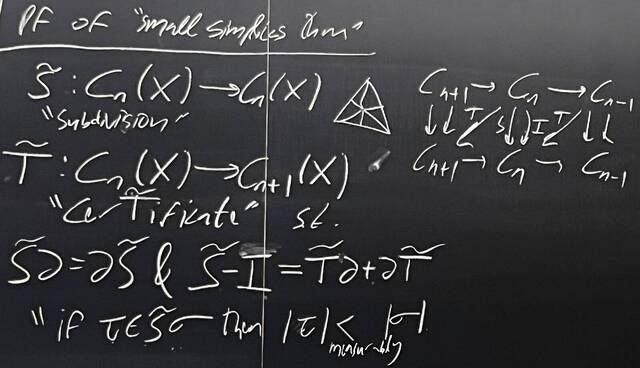 Pf of "small simplices thm"
S̃ : Cₙ(X) → Cₙ(X)
"Subdivision"
T̃ : Cₙ(X) → Cₙ₊₁(X)
"CerTificate" s.t.
S̃∂=∂S̃ & S̃-I = T̃∂+∂T̃
"if τ∈S̃σ then |τ| < |σ|
measurably
Cₙ₊₁ → Cₙ → Cₙ₋₁
↓↓ T S ↓↓ I T ↓↓
Cₙ₊₁ → Cₙ → Cₙ₋₁